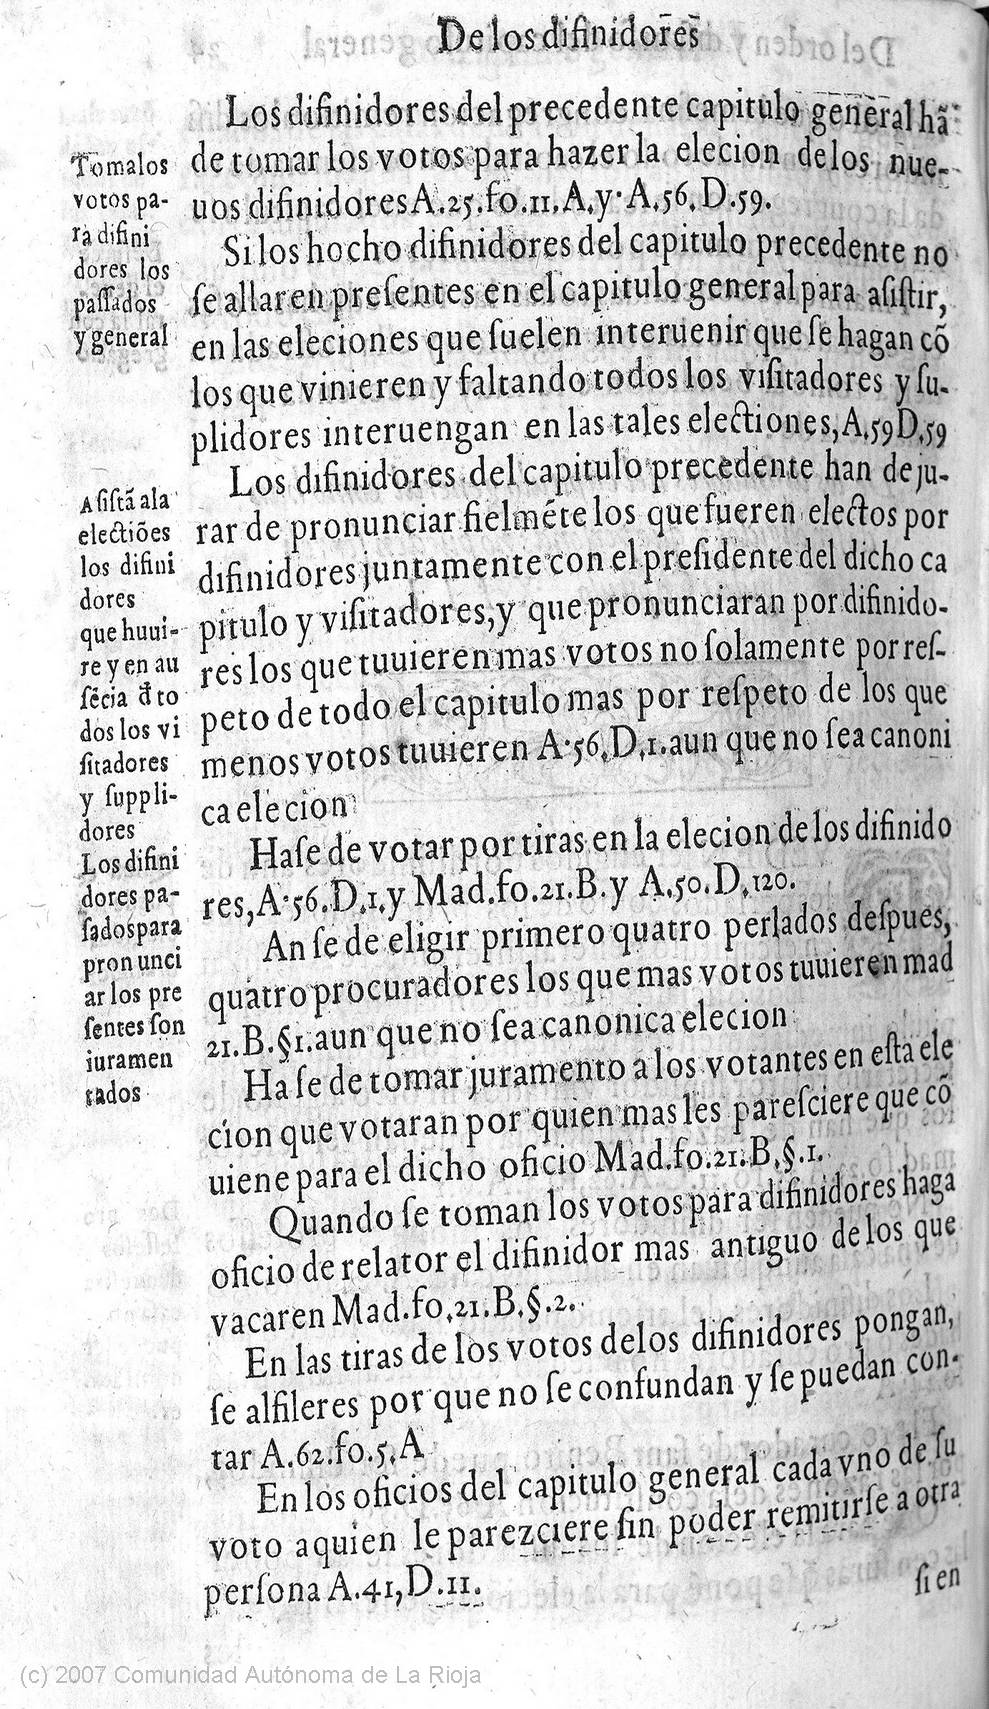 De los difinidor̃es̃
Los difinidores del precedente capitulo general hã
de tomar los votos para hazer la elecion de los nue-
uos difinidores A.25.fo.11.A,y·A,56,D.59.
Si los hocho difinidores del capitulo precedente no
ſe allaren preſentes en el capitulo general para aſiſtir,
en las eleciones que ſuelen interuenir que ſe hagan cõ
los que vinieren y faltando todos los viſitadores y ſu-
plidores interuengan en las tales electiones,A,59D,59
Los difinidores del capitulo precedente han de ju-
rar de pronunciar fielméte los que fueren electos por
difinidores juntamente con el preſidente del dicho ca
pitulo y viſitadores,y que pronunciaran por difinido-
res los que tuuieren mas votos no ſolamente por reſ-
peto de todo el capitulo mas por reſpeto de los que
menos votos tuuieren A·56,D,1.aun que no ſea canoni
ca elecion
Haſe de votar por tiras en la elecion de los difinido
res,A·56.D,1,y Mad.fo.21.B.y A,50.D,120.
An ſe de eligir primero quatro perlados deſpues,
quatro procuradores los que mas votos tuuieren mad
21.B.§1.aun que no ſea canonica elecion
Ha ſe de tomar juramento a los votantes en eſta ele
cion que votaran por quien mas les pareſciere que cõ
uiene para el dicho oficio Mad.fo.21.B,§.1.
Quando ſe toman los votos para difinidores haga
oficio de relator el difinidor mas antiguo de los que
vacaren Mad.fo,21.B,§.2.
En las tiras de los votos delos difinidores pongan,
ſe alfileres por que no ſe confundan y ſe puedan con-
tar A.62.fo.5,A
En los oficios del capitulo general cada vno de ſu
voto a quien le parezciere ſin poder remitirſe a otra
perſona A.41,D.11.
ſi en
Tomalos
votos pa-
ra difini
dores los
paſſados
y general
Aſiſtã ala
electiões
los difini
dores
que huui-
re y en au
ſécia đ to
dos los vi
ſitadores
y ſuppli-
dores
Los difini
dores pa-
ſados para
pronunci
ar los pre
ſentes ſon
iuramen
tados
(c) 2007 Comunidad Autónoma de La Rioja